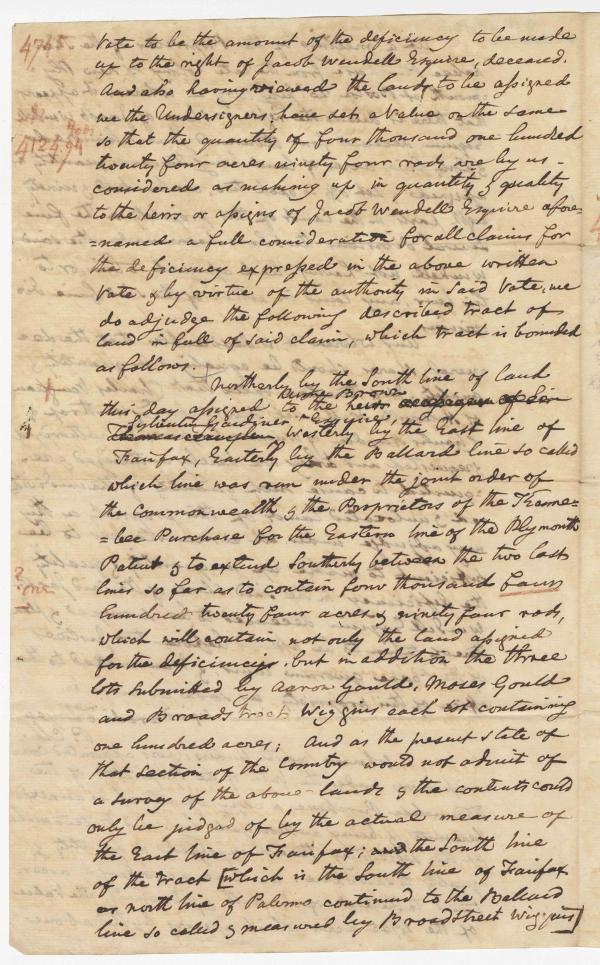 4765 Vote to be the amount of the deficiency to be made
up to the right of Jacob Wendell Esquire, deceased.
And also having viewed the lands to be assigned
we the Undersigners, have set a Value on the same
so that the quantity of four thousand one hundred
4124.94 twenty four acres ninety four rods are by us
considered as making up in quantity & quality
to the heirs or assigns of Jacob Wendell Esquire afore=
=named a full consideration for all claims for
the deficiency expressed in the above written
Vote, & by virtue of the authority in said Vote, we
do adjudge the following described tract of
land in full of said claim, which tract is bounded
as follows.
+ Northerly by the South line of land
this day assigned to the heirs or assigns of Sir
Sylvester Gardiner, Esquire
Westerly by the East line of
Fairfax, Easterly by the Ballard line so called
which line was run under the joint order of
the Commonwealth & the Proprietors of the Kenne=
=bec Purchase for the Eastern line of the Plymouth
Patent & to extend Southerly between the two last
lines so far as to contain four thousand four
hundred twenty four acres & ninety four rods,
which will contain not only the land assigned
for the deficiency, but in addition the three
lots submitted by Aaron Gould, Moses Gould
and Broadstreet Wiggins each lot containing
one hundred acres; And as the present state of
that section of the Country would not admit of
a survey of the above lands & the contents could
only be judged of by the actual measure of
the East line of Fairfax; and the South line
of the tract [which is the South line of Fairfax
or north line of Palermo continued to the Ballard
line so called & measured by Broadstreet Wiggins]